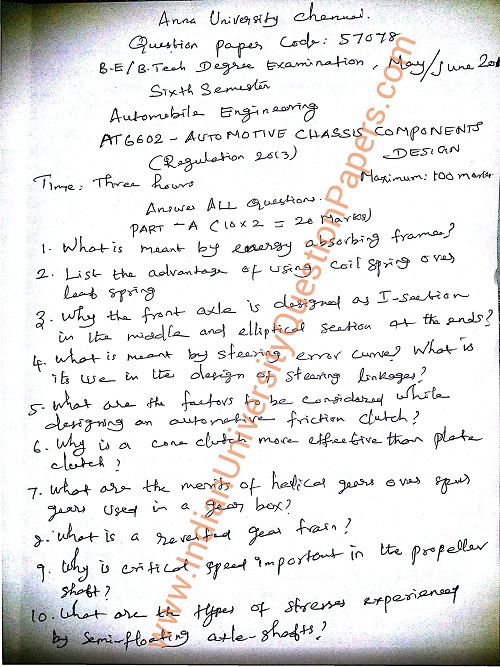 Anna University Chennai.
Question paper Code: 57078
B.E/B.Tech Degree Examination, May/June
Sixth Semester
Automobile Engineering
AT6602 - AUTOMOTIVE CHASSIS COMPONENTS
DESIGN
(Regulation 2013)
Time: Three hours
Maximum: 100 marks
Answer ALL Questions.
PART - A (10 x 2 = 20 Marks)
1. What is meant by energy absorbing frames?
2. List the advantage of using coil spring over
leaf spring
3. Why the front axle is designed as I-section
in the middle and elliptical section at the ends?
4. What is meant by steering error curve? What is
its use in the design of steering linkages?
5. What are the factors to be considered while
designing an automotive friction clutch?
6. Why is a cone clutch more effective than plate
clutch?
7. What are the merits of helical gears over spur
gears used in a gear box?
8. What is a reverted gear train?
9. Why is critical speed important in the propeller
shaft?
10. What are the types of stresses experienced
by semi-floating axle-shafts?
www.IndianUniversityQuestionPapers.com